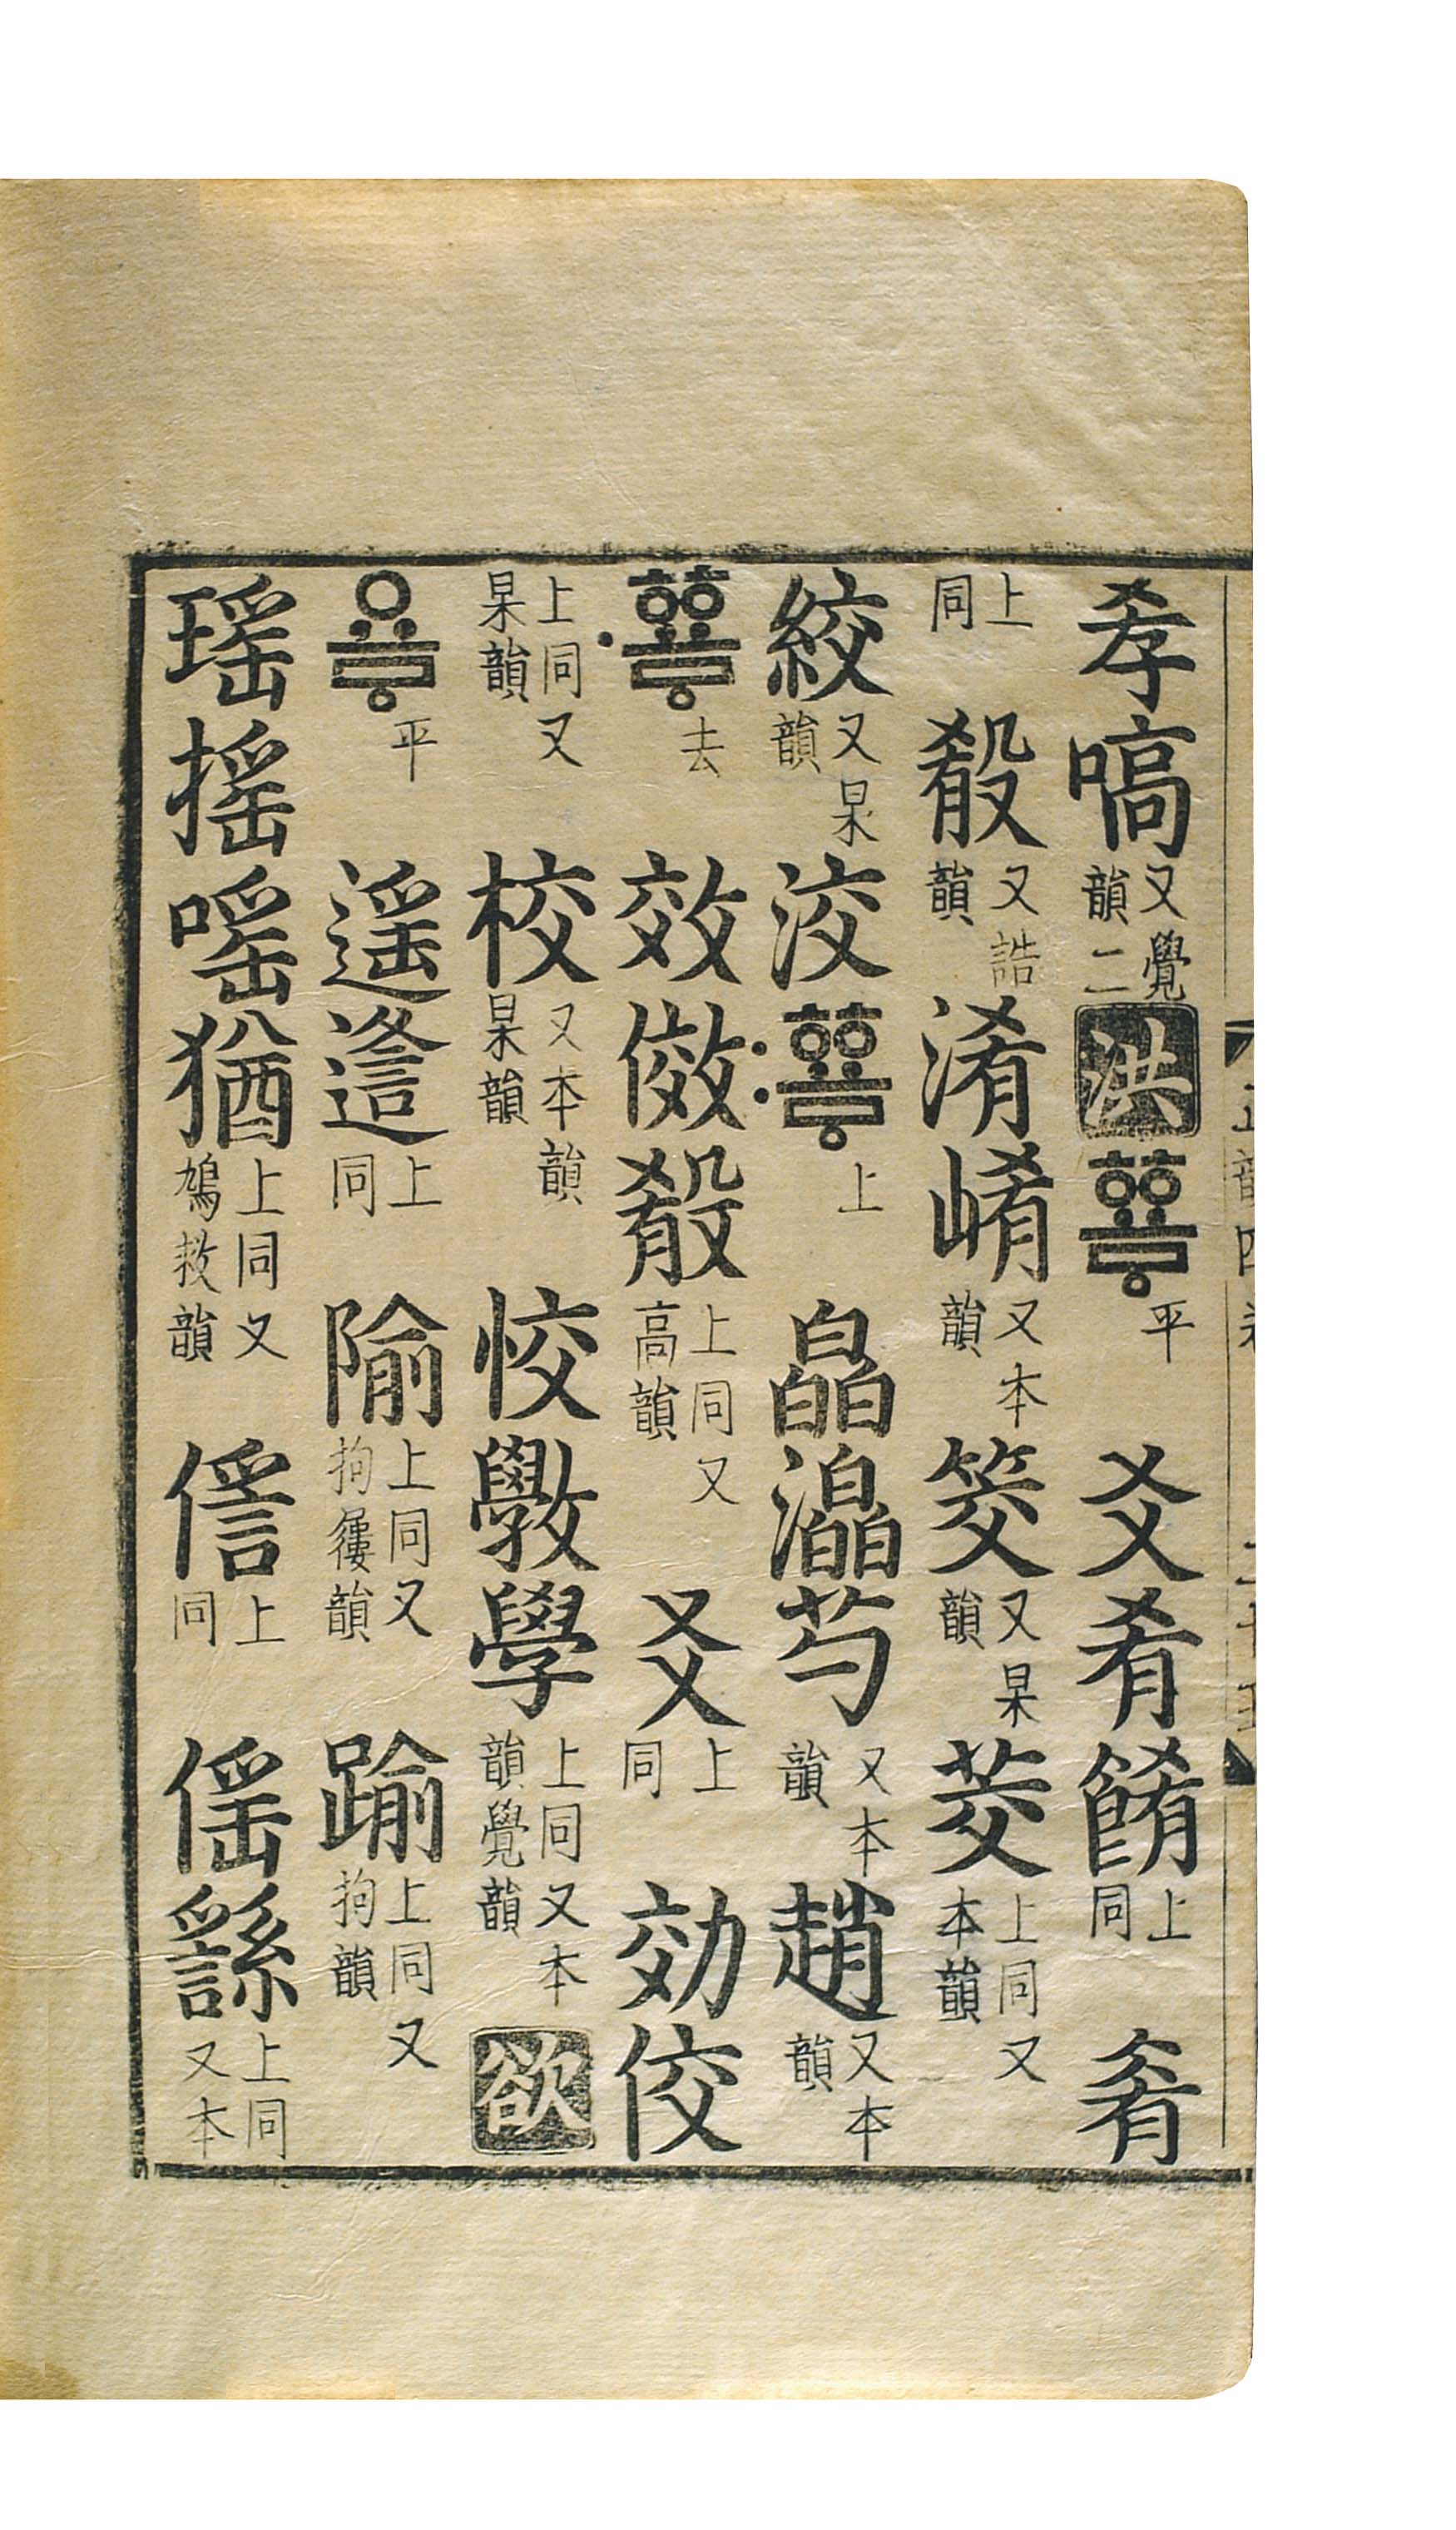 孝嗃又覺韻二洪ᅘᅭᇢ平爻肴餚上同肴
上同殽又誥韻淆崤又本韻筊又杲韻茭上同又本韻
絞又杲韻洨〯ᅘᅭᇢ上皛灥芍又本韻趙又本韻
〮ᅘᅭᇢ去效傚殽上同又高韻爻上同効佼
上同又杲韻校又本韻杲韻恔斆學上同又本韻覺韻欲
요ᇢ平遙上同隃上同又拘屨韻踰上同又拘韻
瑤搖嗂猶上同又鳩救韻上同傜繇上同又本